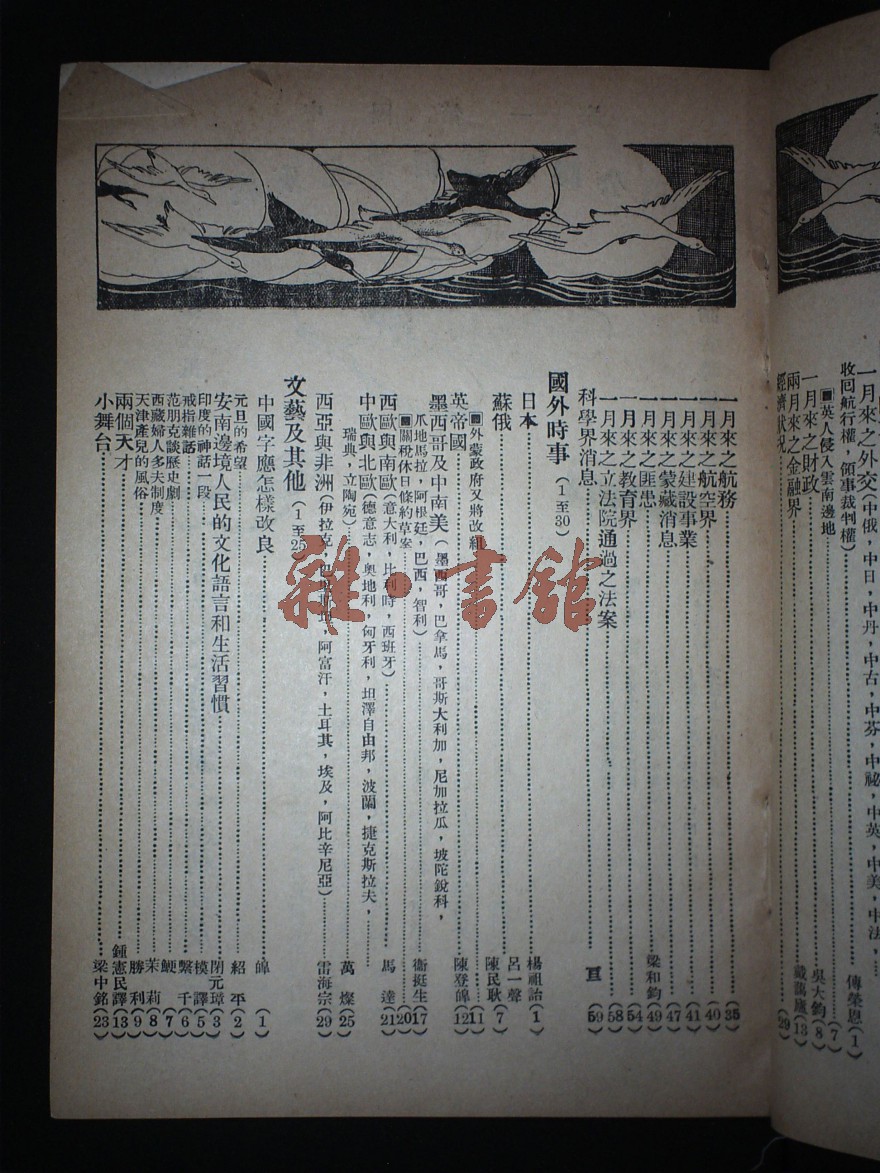 一月來之外交(中俄，中日，中丹，中古，中芬，中祕，中英，中美，中法，
收回航行權，領事裁判權)……傅榮恩(1)
■英人侵入雲南邊地……(7)
一月來之財政……吳大鈞(8)
兩月來之金融界……戴藹廬(13)
經濟狀況……(29)
一月來之航務……(35)
一月來之航空界……(40)
一月來之建設事業……(41)
一月來之蒙藏消息……(47)
一月來之匪患……梁和鈞(49)
一月來之教育界……(54)
一月來之立法院通過之法案……(58)
科學界消息……亘(59)
國外時事(1至30)
日本……楊祖詒(1)
呂一聲
蘇俄……陳民耿(7)
■外蒙政府又將改組……(11)
英帝國……陳登皥(12)
墨西哥及中南美(墨西哥，巴拿馬，哥斯大利加，尼加拉瓜，坡陀銳科，
爪地馬拉，阿根廷，巴西，智利)……衞挺生(17)
■關稅休日條約草案……(20)
西歐與南歐(意大利，比利時，西班牙)……馬達(21)
中歐與北歐(德意志，奧地利，匈牙利，坦澤自由邦，波蘭，捷克斯拉夫，
瑞典，立陶宛)……萬燦(25)
西亞與非洲(伊拉克，阿富汗，土耳其，埃及，阿比辛尼亞)……雷海宗(29)
文藝及其他(1至25)
中國字應怎樣改良……皥(1)
元旦的希望……紹平(2)
安南邊境人民的文化語言和生活習慣……閉元璋(3)
印度的神話一段……模譯(5)
戒指雜話……繫千(6)
范朋克談歷史劇……鯁(7)
西藏婦人多夫制度……茉莉(8)
天津產兒的風俗……勝利(9)
兩個天才……鍾憲民譯(13)
小舞台……梁中銘(23)
雜·書館